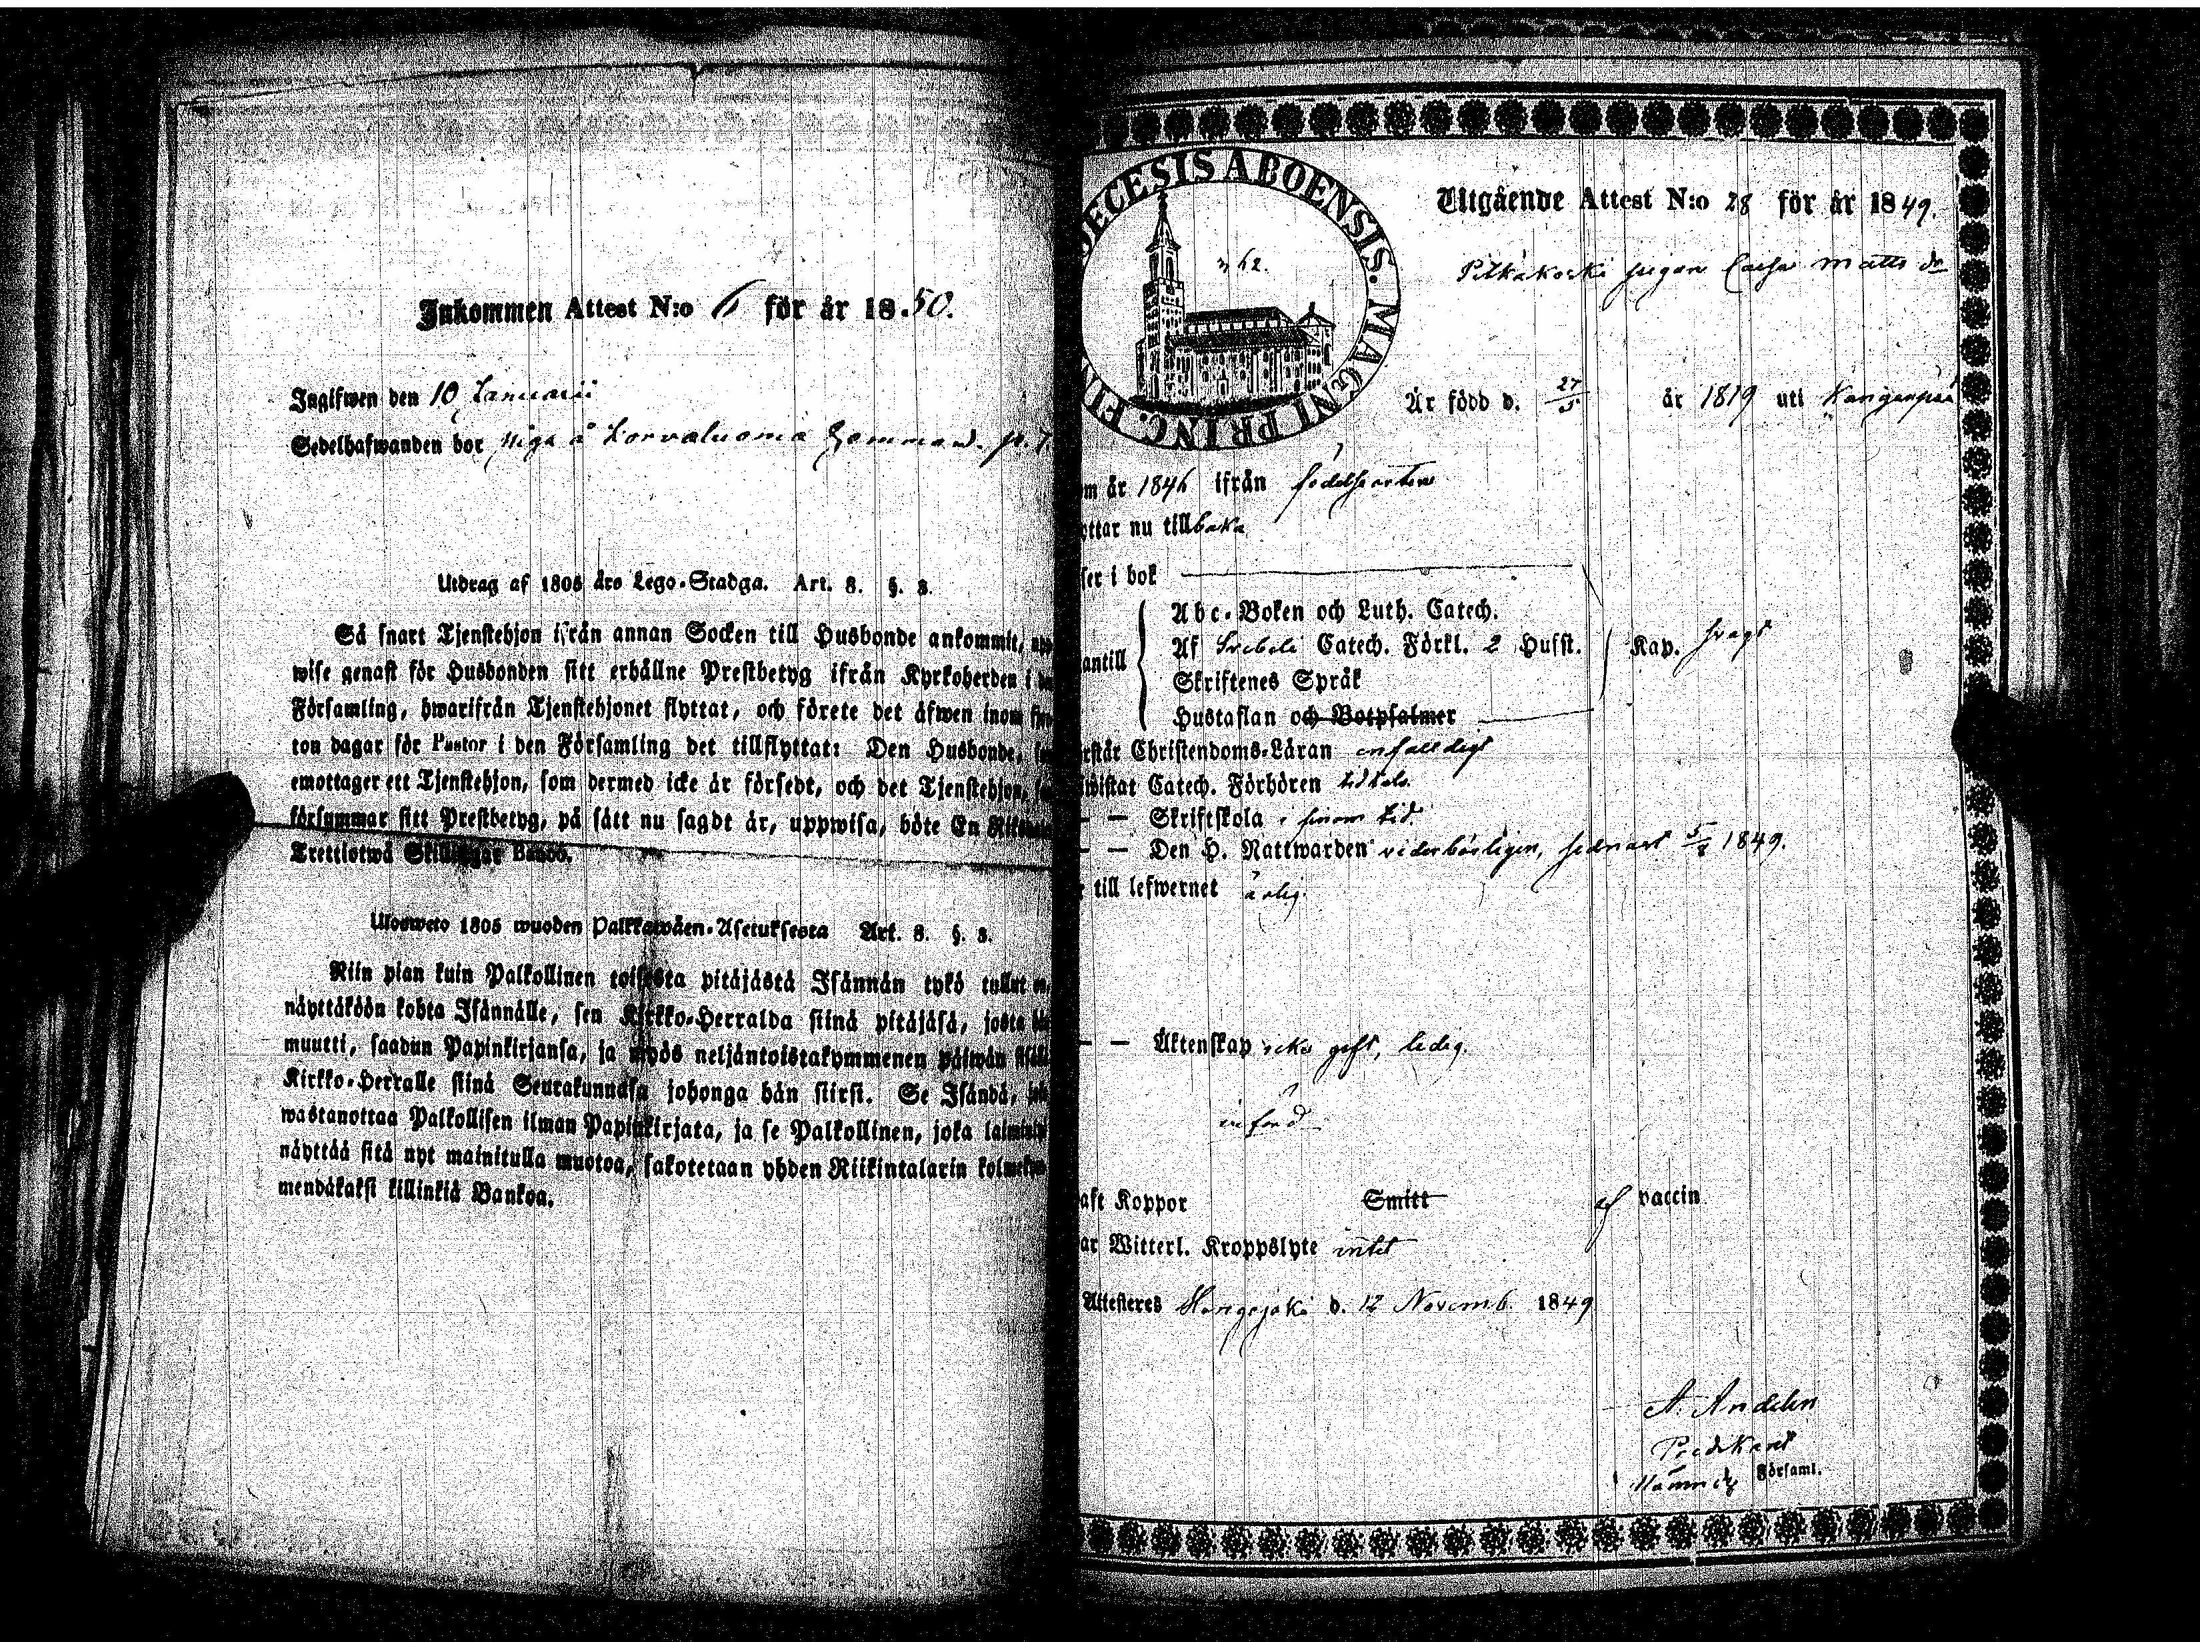 Inkommen Attest N:o 6 för år 1850.
Ingifwen den 10 Januarii
Sedelhafwanden bor piga å Korvaluoma
Utdrag af 1805 års Lego-Stadga. Art. 8. §. 3.
Så snart Tjenstehjon ifrån annan Socken till Husbonde ankommit, upp
wise genast för Husbonden sitt erhållne Prestbetyg ifrån Kyrkoherden i
Församling, hwarifrån Tjenstehjonet flyttat, och förete det äfwen inom
ton dagar för Pastor i den Församling det tillflyttat: Den Husbonde,
emottager ett Tjenstehjon, som dermed icke är försedt, och det Tjenstehjon,
försummar sitt Prestbetyg, på sätt nu sagdt är, uppwisa, böte En
Trettiotwå Skillingar Banco.
Ulosweto 1805 wuoden Palkkawäen-Asetuksesta Art. 8. §. 3.
Niin pian kuin Palkollinen toisesta pitäjästä Isännän tykö tullut on,
näyttäköön kohta Isännälle, sen Kirkko-Herralda siinä pitäjäsä, josta hän
muutti, saadun Papinkirjansa, ja myös neljäntoistakymmenen päiwän
Kirkko-Herralle siinä Seurakunnasa johonga hän siirsi. Se Isändä,
wastanottaa Palkollisen ilman Papinkirjata, ja se Palkollinen, joka
näyttää sitä nyt mainitulla muotoa, sakotetaan yhden Riikintalarin
mendäkaksi killinkiä Bankoa.
DIOECESIS ABOENSIS. MAGNI PRINC. FIN
Utgående Attest N:o 28 för år 1849.
Pitkäkoski pigan Caisa Matts dr
Är född d. 27/5 år 1819 uti Kangasniemi
om år 1846 ifrån födelseorten
ottar nu tillbaka
ser i bok
Abc-Boken och Luth. Catech.
Af Svebeli Catech. Förkl. 2 Husst. Kap. svagt
antill
Skriftenes Språk
Hustaflan och Botpsalmer
rstår Christendoms-Läran enfalldigt
wistat Catech. Förhören
— — Skriftskola i sinom tid.
— — Den H. Nattwarden vederbörligen, sednast 5/8 1849.
till lefwernet ärlig.
— — Äktenskap icke gift, ledig.
införd
aft Koppor Smitt af vaccin
ar Witterl. Kroppslyte intet
Attesteres Hongojoki d. 12 Novemb. 1849
A. Andelin
Predikant
Församl.